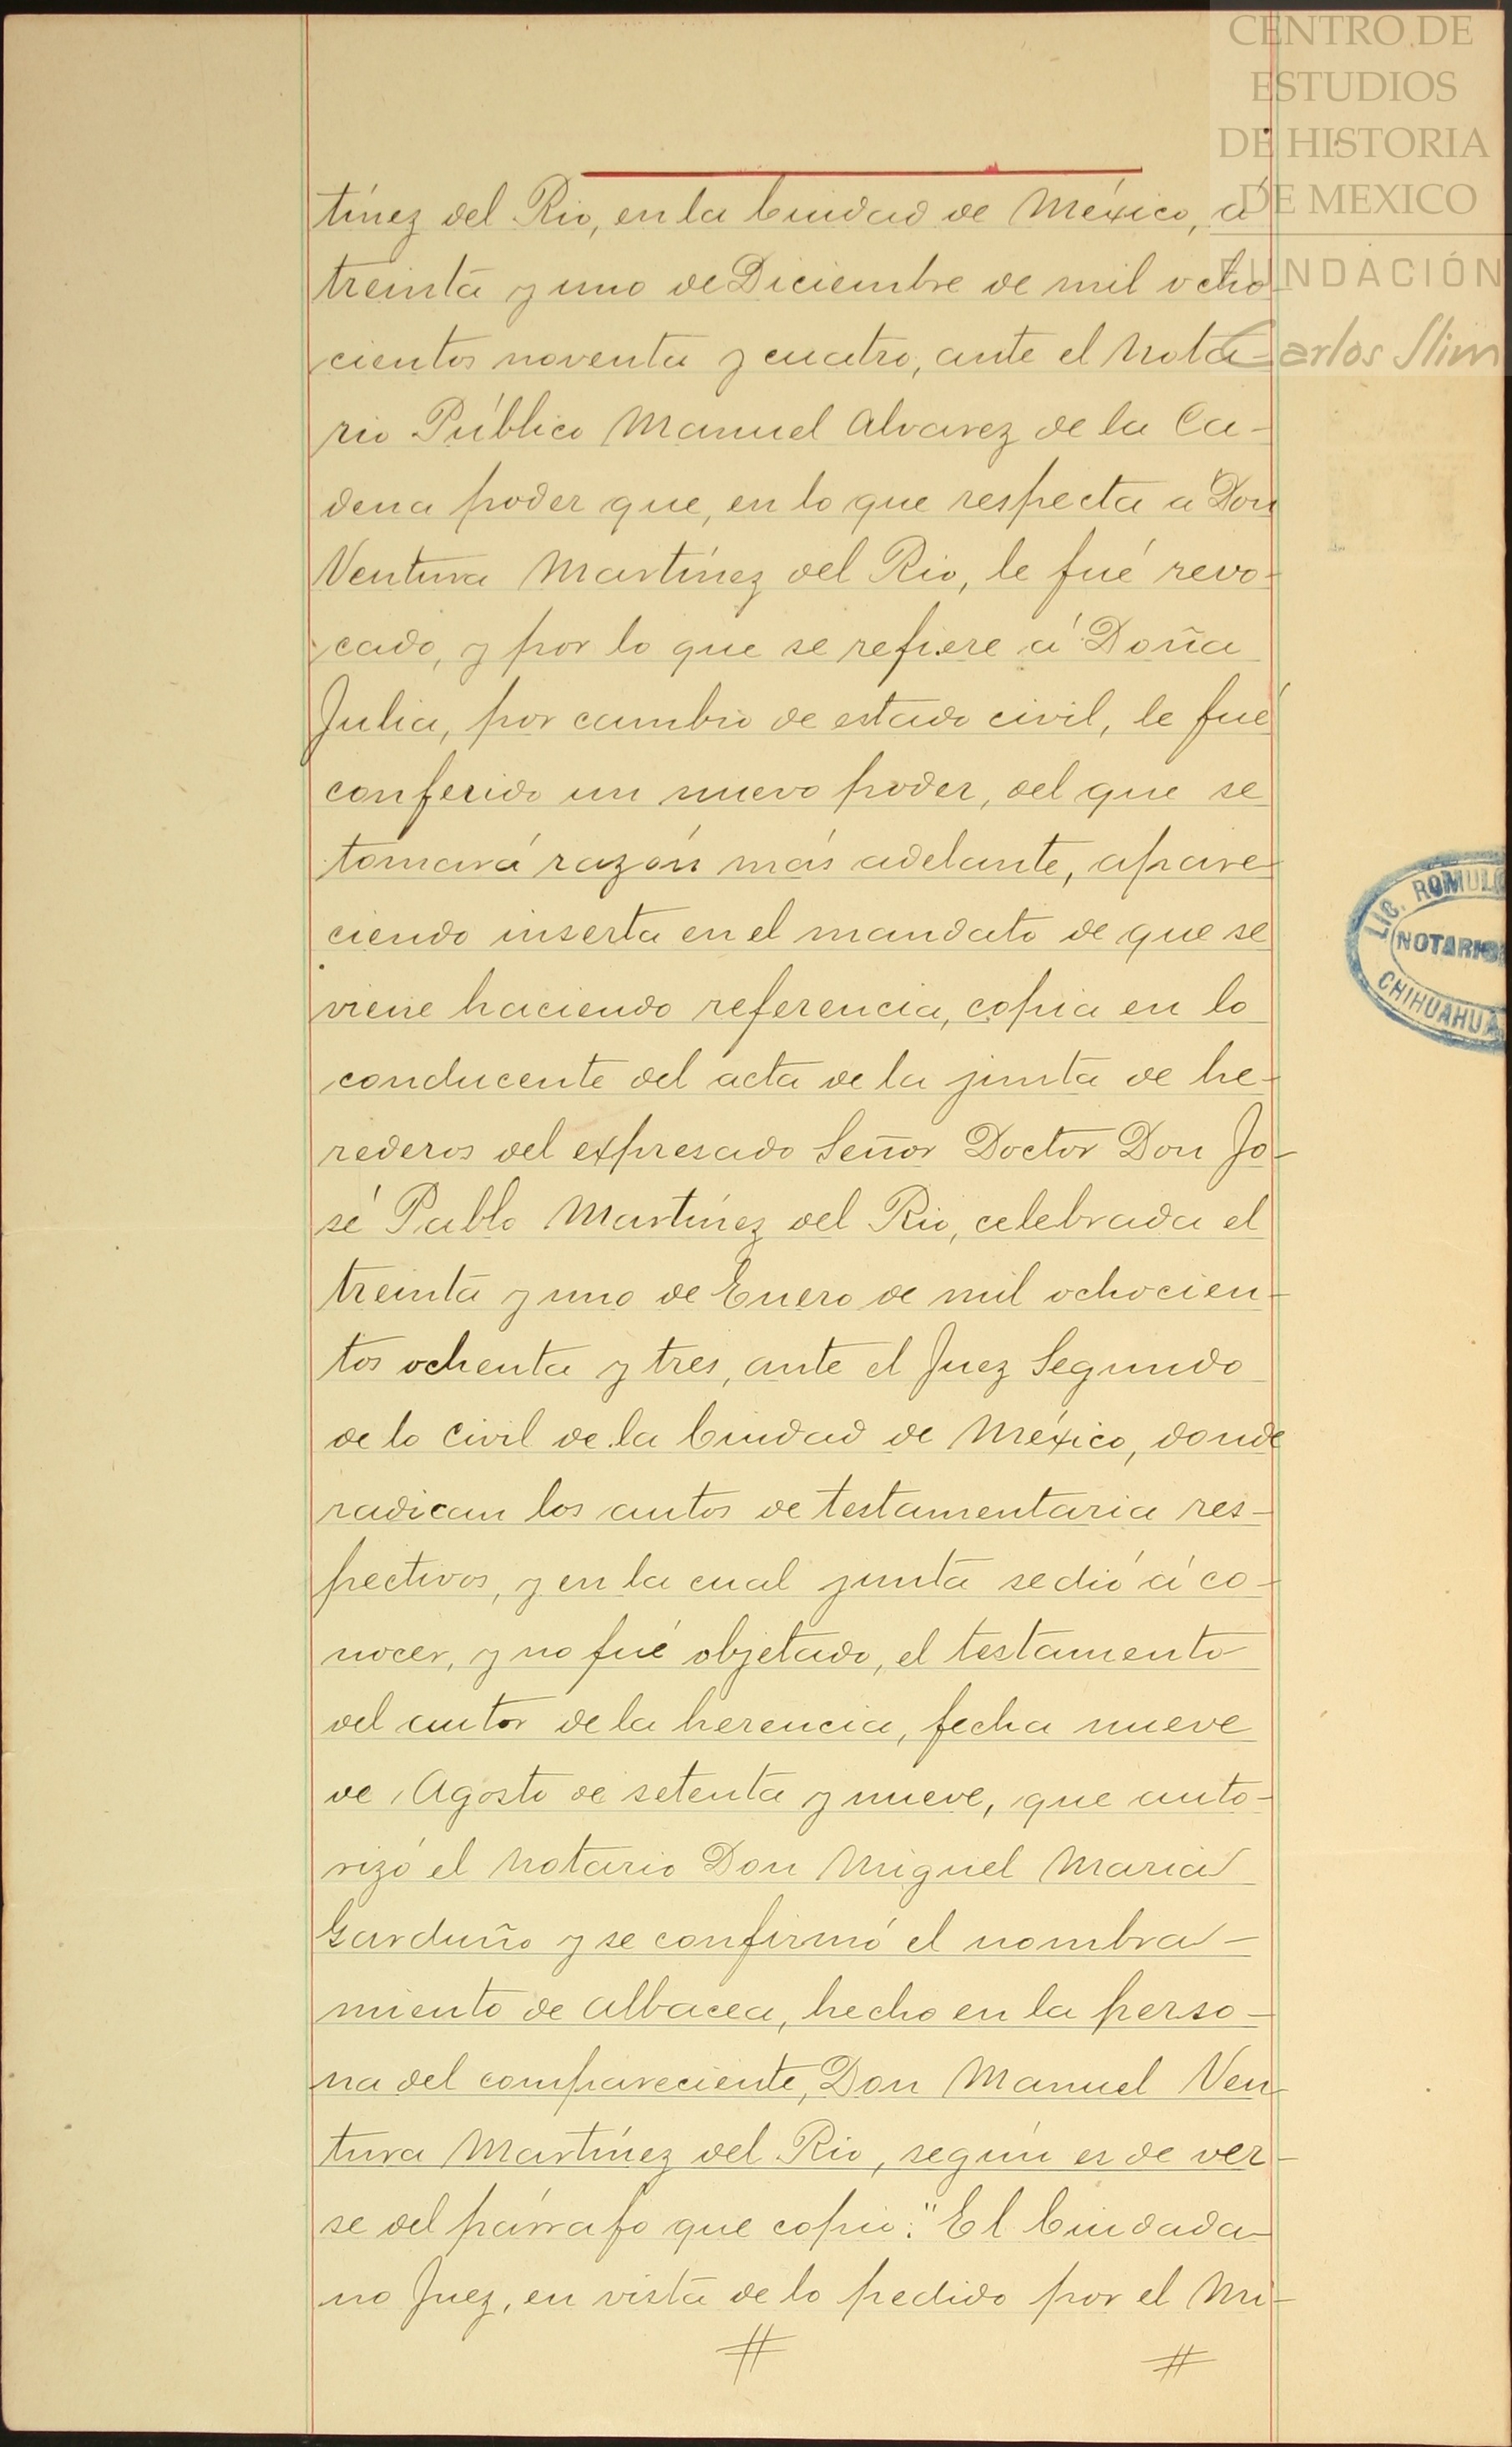 CENTRO DE
ESTUDIOS
DE HISTORIA
DE MEXICO
FUNDACIÓN
Carlos Slim
tínez del Rio, en la Ciudad de México, á
treinta y uno de Diciembre de mil ocho-
cientos noventa y cuatro, ante el Nota-
rio Público Manuel Alvarez de la Ca-
dena poder que, en lo que respecta a Don
Ventura Martínez del Rio, le fué revo-
cado, y por lo que se refiere á Doña
Julia, por cambio de estado civil, le fué
conferido un nuevo poder, del que se
tomará razón más adelante, apare-
ciendo inserta en el mandato de que se
viene haciendo referencia, copia en lo
conducente del acta de la junta de he-
rederos del expresado Señor Doctor Don Jo-
sé Pablo Martínez del Rio, celebrada el
treinta y uno de Enero de mil ochocien-
tos ochenta y tres, ante el Juez Segundo
de lo Civil de la Ciudad de México, donde
radican los autos de testamentaria res-
pectivos, y en la cual junta se dió á co-
nocer, y no fué objetado, el testamento
del autor de la herencia, fecha nueve
de Agosto de setenta y nueve, que auto-
rizó el Notario Don Miguel Maria
Garduño y se confirmó el nombra-
miento de Albacea, hecho en la perso-
na del compareciente, Don Manuel Ven-
tura Martínez del Rio, según es de ver-
se del párrafo que copio: "El Ciudada-
no Juez, en vista de lo pedido por el Mi-
LIC. ROMULO
NOTARIO
CHIHUAHUA